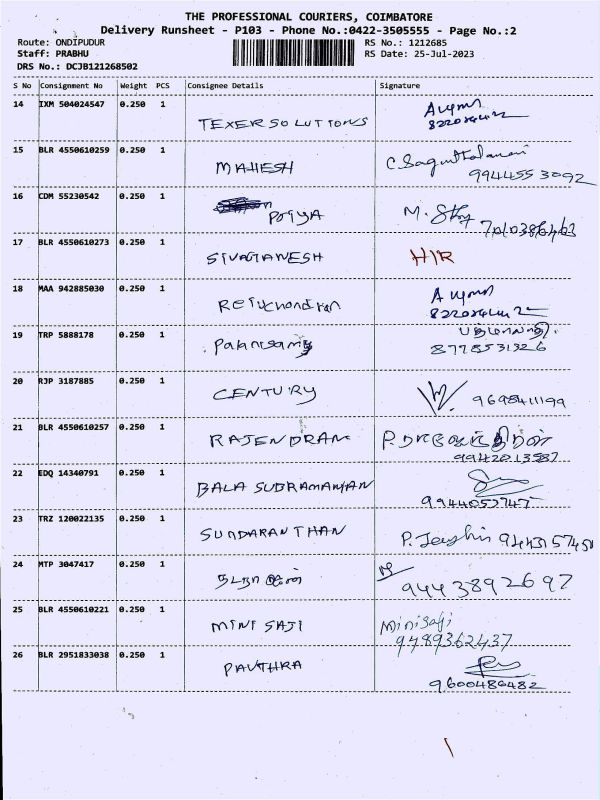 THE PROFESSIONAL COURIERS, COIMBATORE
Delivery Runsheet - P103 - Phone No.:0422-3505555 - Page No.:2
Route: ONDIPUDUR
RS No.: 1212685
Staff: PRABHU
RS Date: 25-Jul-2023
DRS No.: DCJB121268502
S No Consignment No Weight PCS Consignee Details Signature
14 IXM 504024547 0.250 1
TEXER SOLUTIONS
15 BLR 4550610259 0.250 1
MAHESH
9944553092
16 CDM 55230542 0.250 1
PRIYA M.
17 BLR 4550610273 0.250 1
SIVAGANESH H/R
18 MAA 942885030 0.250 1
19 TRP 5888178 0.250 1
8778531326
20 RJP 3187885 0.250 1
CENTURY 9698411199
21 BLR 4550610257 0.250 1
RAJENDRAN
9942013587
22 EDQ 14340791 0.250 1
BALA SUBRAMANIAN
9944053747
23 TRZ 120022135 0.250 1
SUNDARAN THAN
24 MTP 3047417 0.250 1
9443892697
25 BLR 4550610221 0.250 1
MINI SAJI Minisaji
9489362437
26 BLR 2951833038 0.250 1
PAVITHRA
9600486482